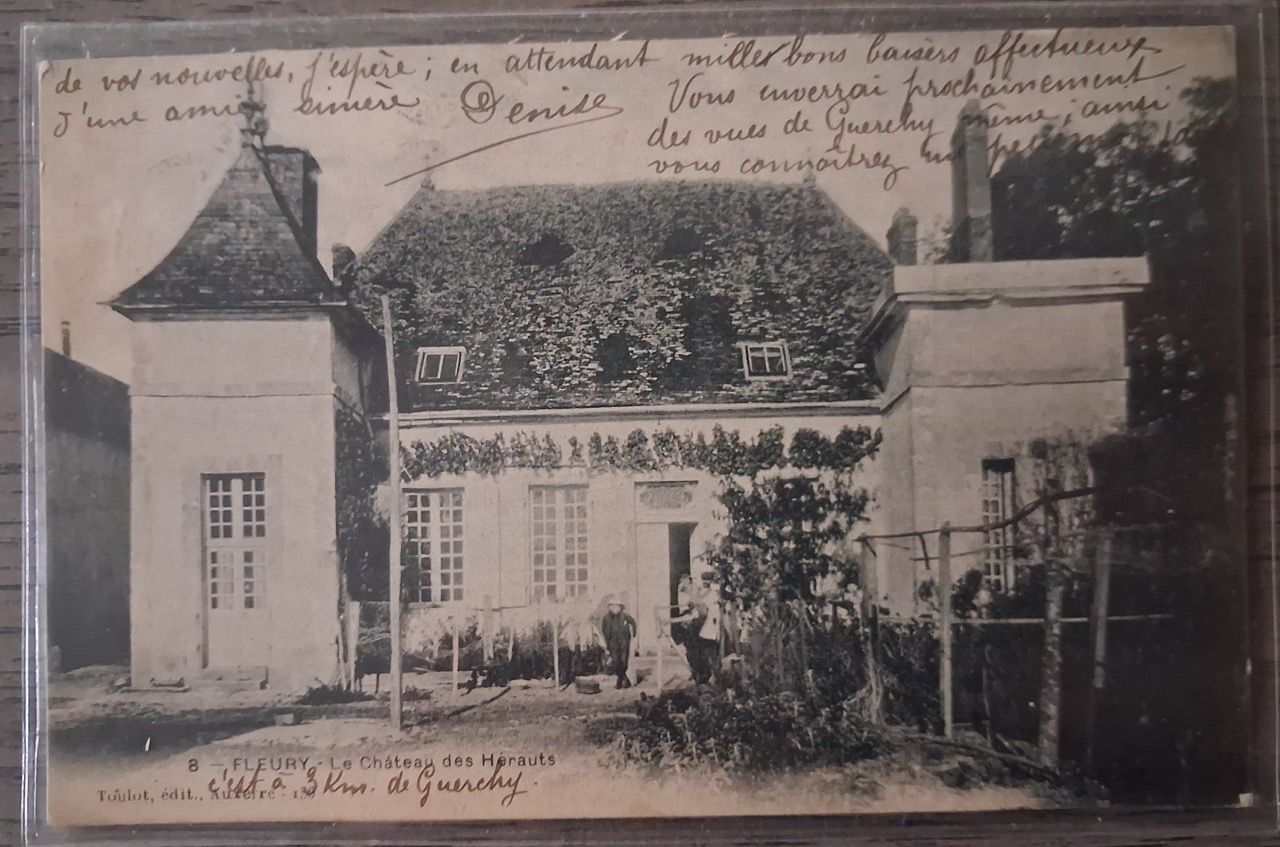 de vos nouvelles, j'espère ; en attendant mille bons baisers affectueux
d'une amie sincère Denise
Vous enverrai prochainement
des vues de Guerchy même ; ainsi
vous connaîtrez un
8 — FLEURY - Le Château des Hérauts
c'est à 3 Km. de Guerchy.
Toulot, édit., Auxerre -